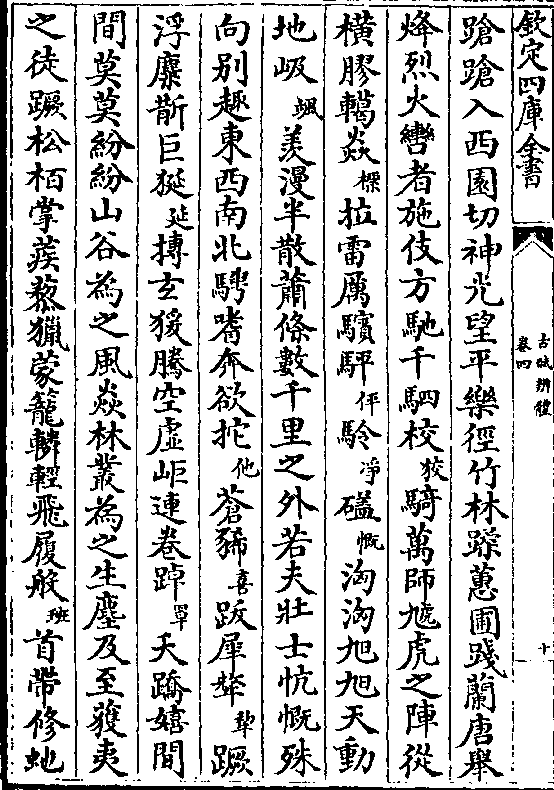 欽定四庫全書
古賦辨體
卷四
十
蹌蹌入西園切神光望平樂徑竹林蹂蕙圃踐蘭唐舉
烽烈火轡者施伎方馳千駟校狡騎萬師虓虎之陳從
橫膠轕猋標拉雷厲驞駍伻駖凈礚慨洶洶旭旭天動
地岋颯羨漫半散蕭條數千里之外若夫壯士忼慨殊
向别趣東西南北騁嗜奔欲拕他蒼豨喜跋犀犛犂蹶
浮麋斮巨狿延搏玄猨騰空虛岠連卷踔罩夭蹻嬉間
間莫莫紛紛山谷為之風猋林叢為之生塵及至獲夷
之徒蹶松栢掌蒺蔾獵蒙籠轔輕飛履般班首帶修虵